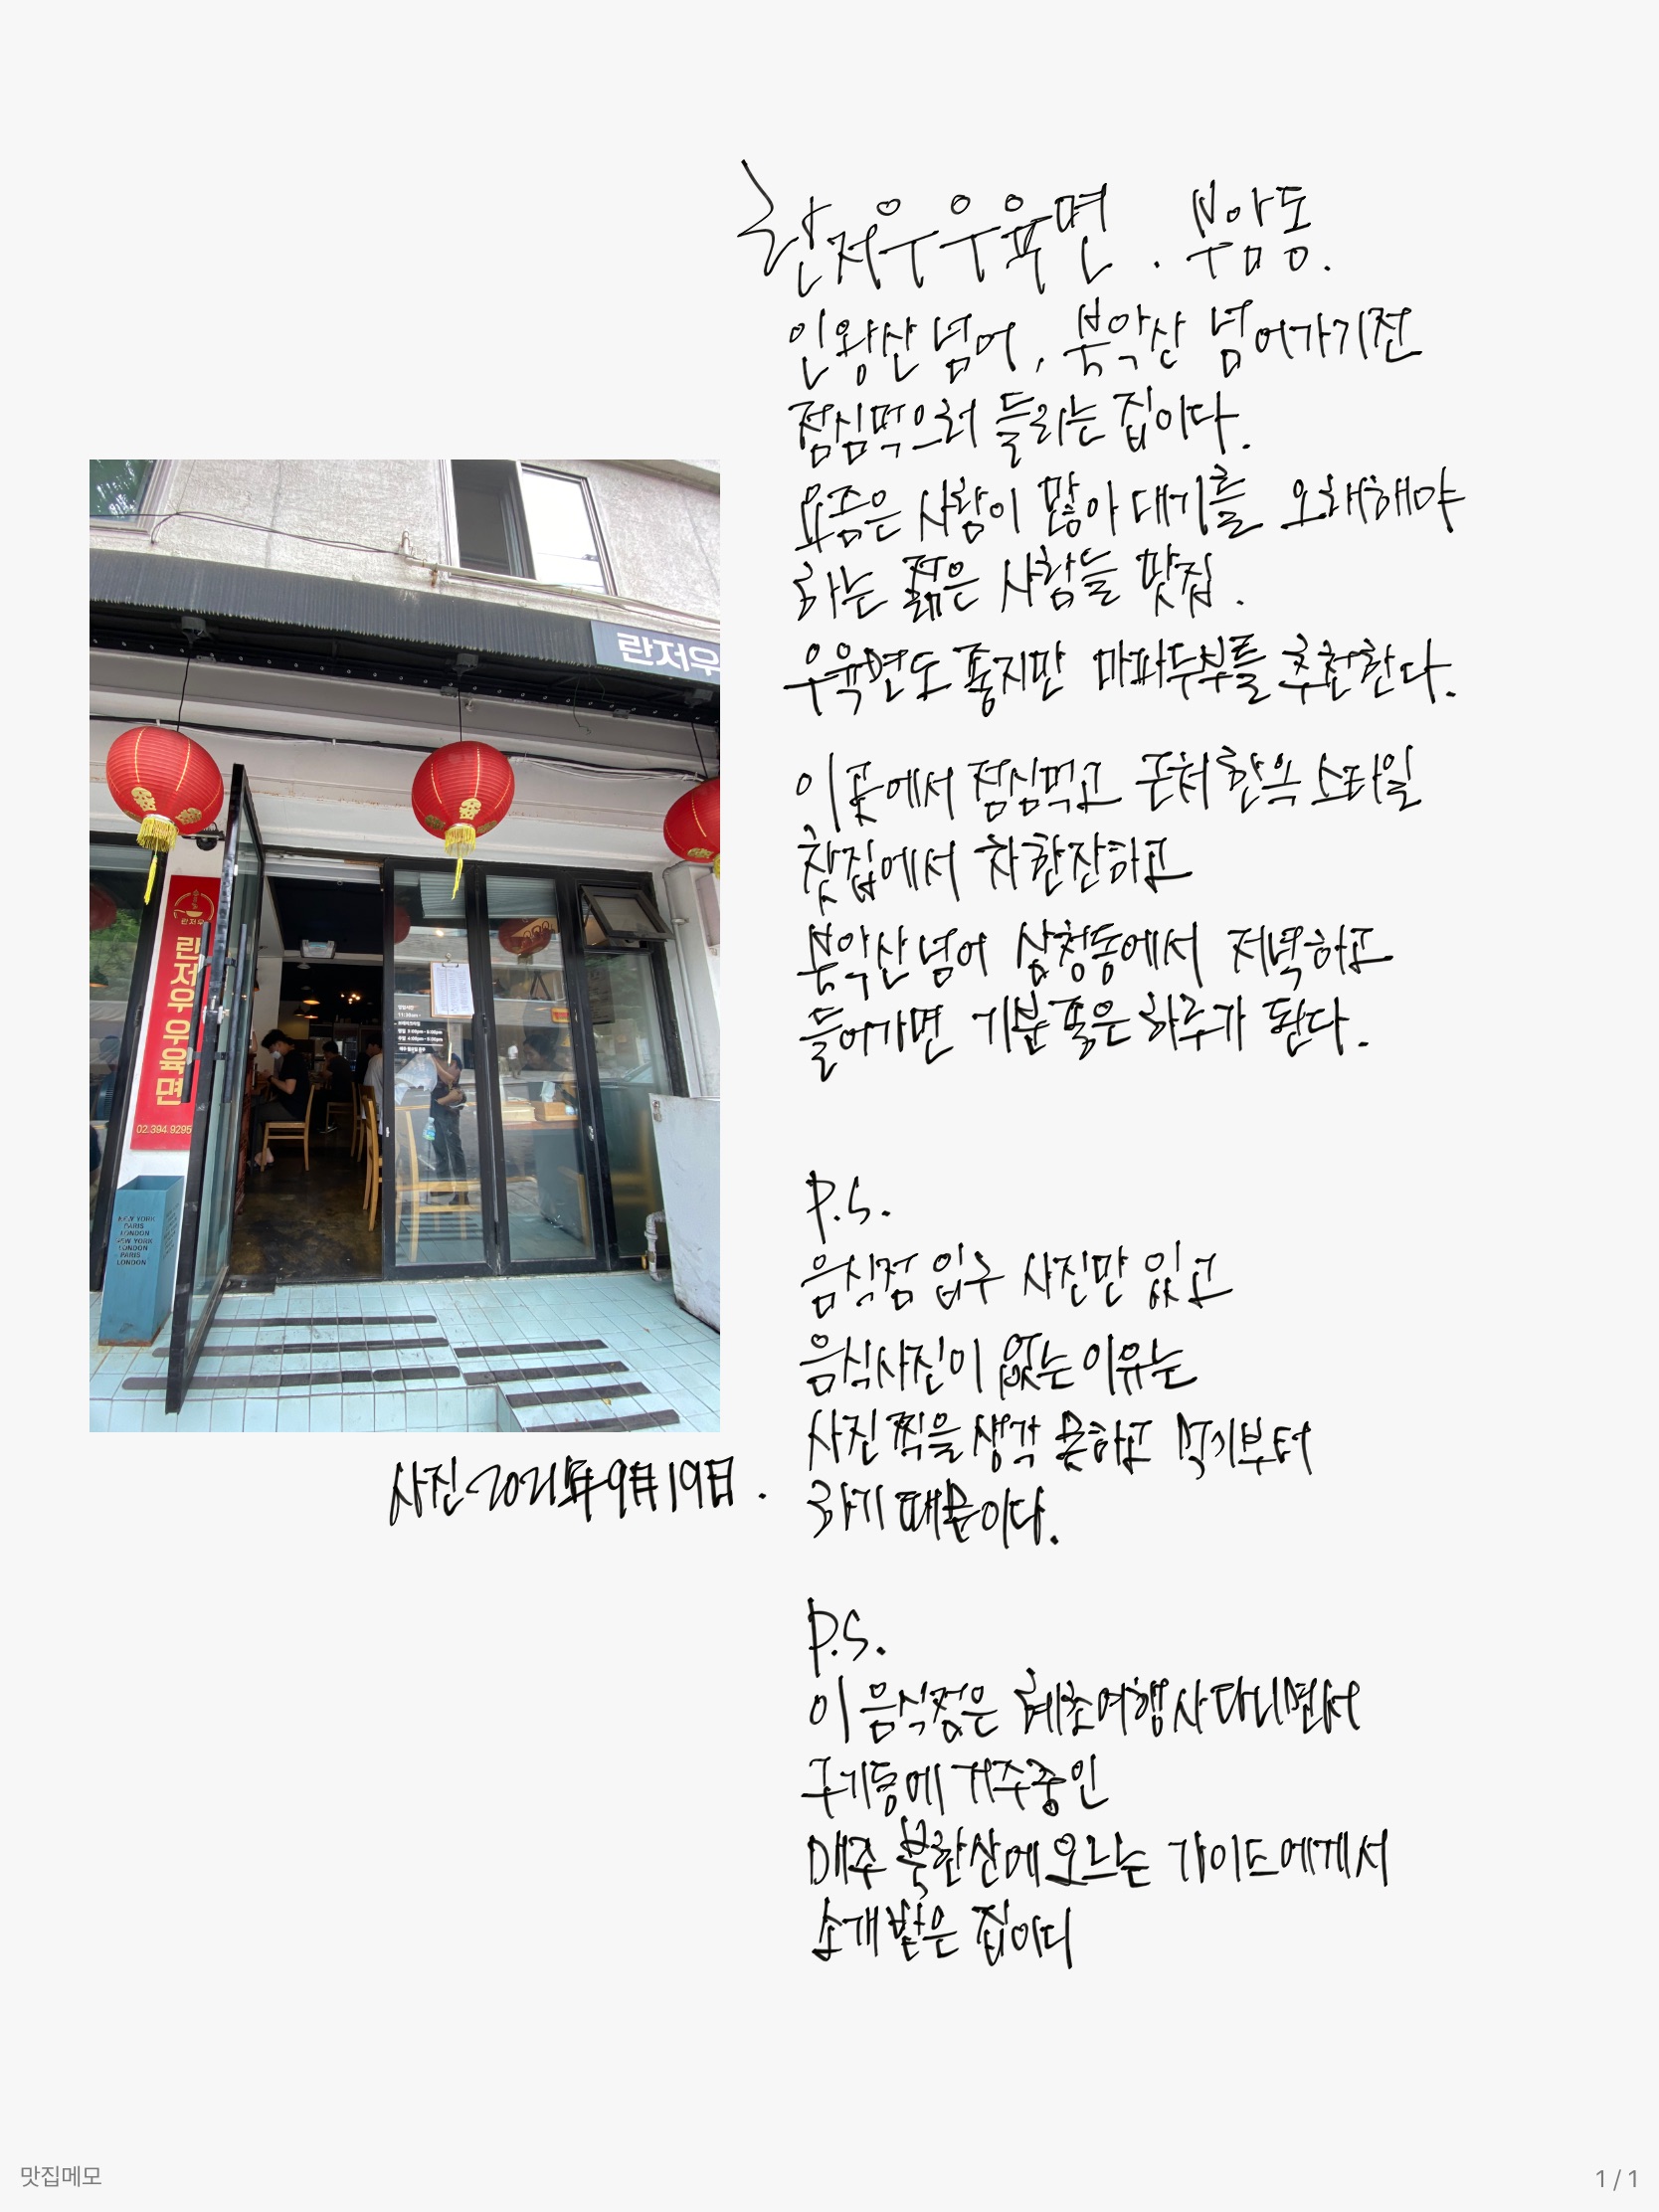 란저우우육면. 부암동.
인왕산 넘어, 북악산 넘어가기전
점심먹으러 들리는 집이다.
요즘은 사람이 많아 대기를 오래해야
하는 젊은 사람들 맛집.
우육면도 좋지만 마파두부를 추천한다.
이곳에서 점심먹고 근처 한옥 스타일
찻집에서 차한잔하고
북악산 넘어 삼청동에서 저녁하고
들어가면 기분 좋은 하루가 된다.
란저우
란저우
란저우 우육면
02.394.9295
NEW YORK
PARIS
LONDON
NEW YORK
LONDON
PARIS
LONDON
사진 2021年9月19日.
P.S.
음식점 입구 사진만 있고
음식사진이 없는 이유는
사진 찍을 생각 못하고 먹기부터
하기 때문이다.
P.S.
이 음식점은 혜초여행사 다니면서
구기동에 거주중인
매주 북한산에 오르는 가이드에게서
소개 받은 집이다
맛집메모
1 / 1